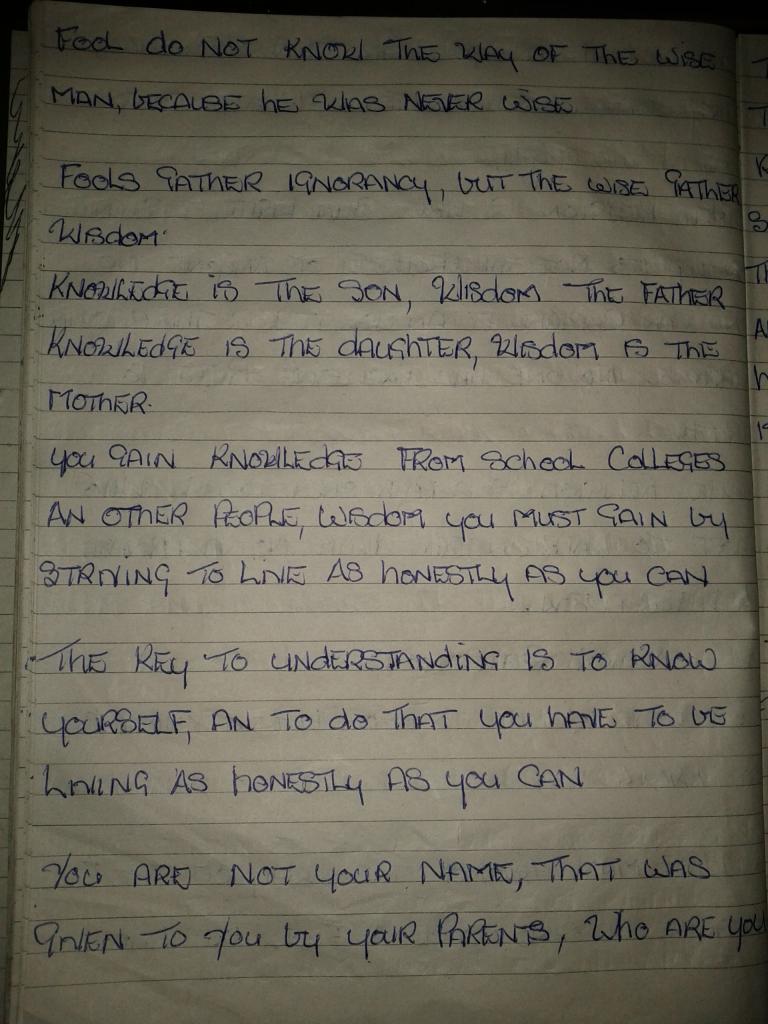 FOOL do NOT KNOW THE WAY OF THE WISE
MAN, bECAUSE hE WAS NEVER WISE
FOOLS GATHER IGNORANCY, bUT THE WISE GATHER
WISdOM.
KNOWLEdGE iS THE SON, WISdOM THE FATHER
KNOWLEdGE IS THE dAUGHTER, WISdOM IS THE
MOTHER.
you GAIN KNOWLEdGE FROM School COLLEGES
AN OTHER PEOPLE, WISdOM you MUST GAIN by
STRIVING TO LIVE AS hONESTLy AS you CAN
THE KEy TO UNdERSTANdiNG IS TO KNOW
yOURSELF, AN TO do THAT you hAVE TO bE
LIVING AS hONESTLy AS you CAN
You ARE NOT yOUR NAME, THAT WAS
GIVEN TO you by yOUR PARENTS, Who ARE you